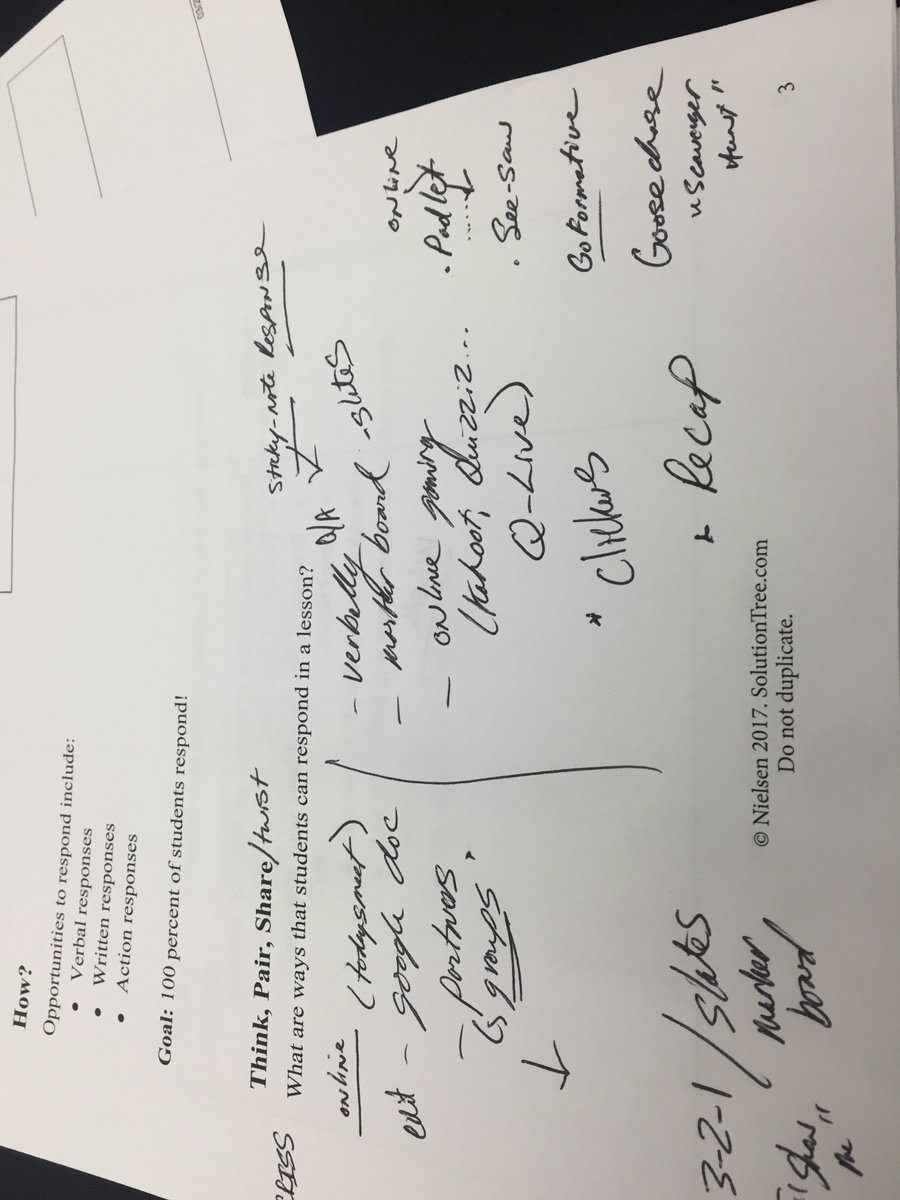 How?
Opportunities to respond include:
• Verbal responses
• Written responses
• Action responses
Goal: 100 percent of students respond!
Think, Pair, Share/twist
sticky-note Response
What are ways that students can respond in a lesson?
online (todaysmeet)
edit - google doc
- partners
groups
- verbally
- marker board -slates
- online gaming
(Kahoot, Quizziz...
Q-Live)
* Clickers
Recap
online
• Padlet
• See-Saw
GoFormative
Goose chase
"Scavenger
Hunt"
3-2-1 / slates
marker
board
"Show
me"
© Nielsen 2017. SolutionTree.com
Do not duplicate.
3